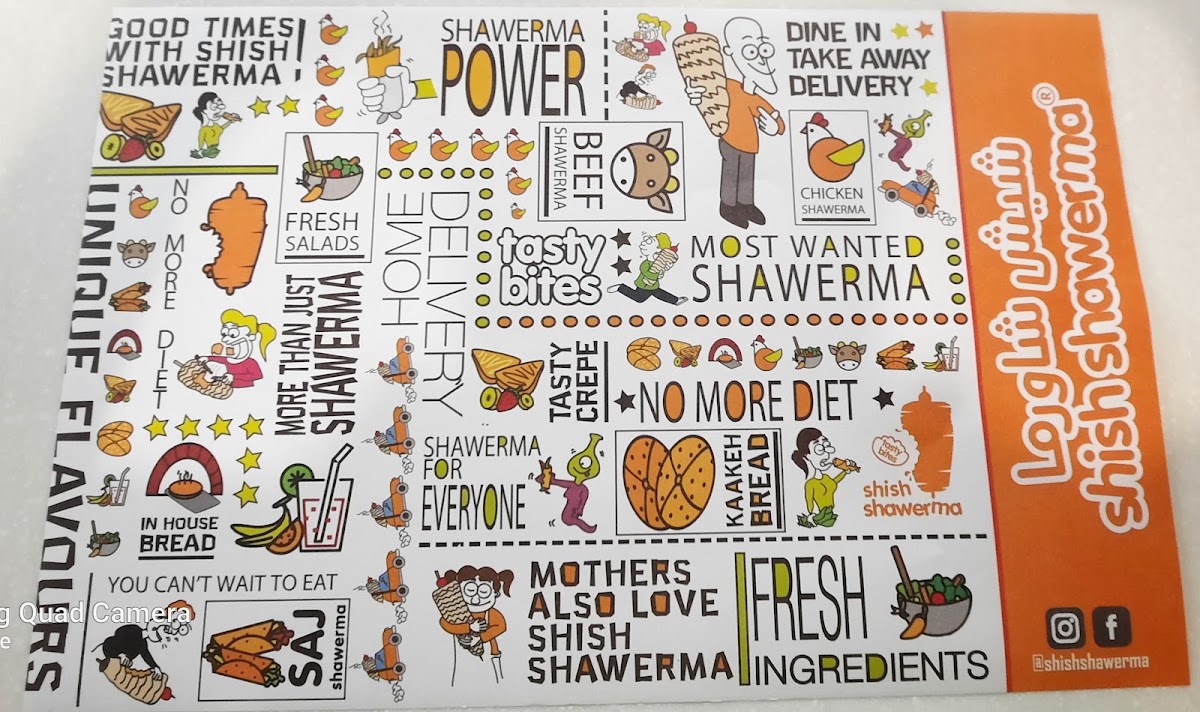 GOOD TIMES
WITH SHISH
SHAWERMA !
SHAWERMA
POWER
DINE IN
TAKE AWAY
DELIVERY
BEEF
SHAWERMA
CHICKEN
SHAWERMA
FRESH
SALADS
UNIQUE FLAVOURS
NO MORE DIET
MORE THAN JUST
SHAWERMA
DELIVERY
HOME
tasty
bites
MOST WANTED
SHAWERMA
TASTY
CREPE
NO MORE DIET
SHAWERMA
FOR
EVERYONE
KAAKEH
BREAD
tasty
bites
shish
shawerma
IN HOUSE
BREAD
YOU CAN'T WAIT TO EAT
SAJ
shawerma
MOTHERS
ALSO LOVE
SHISH
SHAWERMA
FRESH
INGREDIENTS
شيش شاورما
shishshawerma®
@shishshawerma
Quad Camera